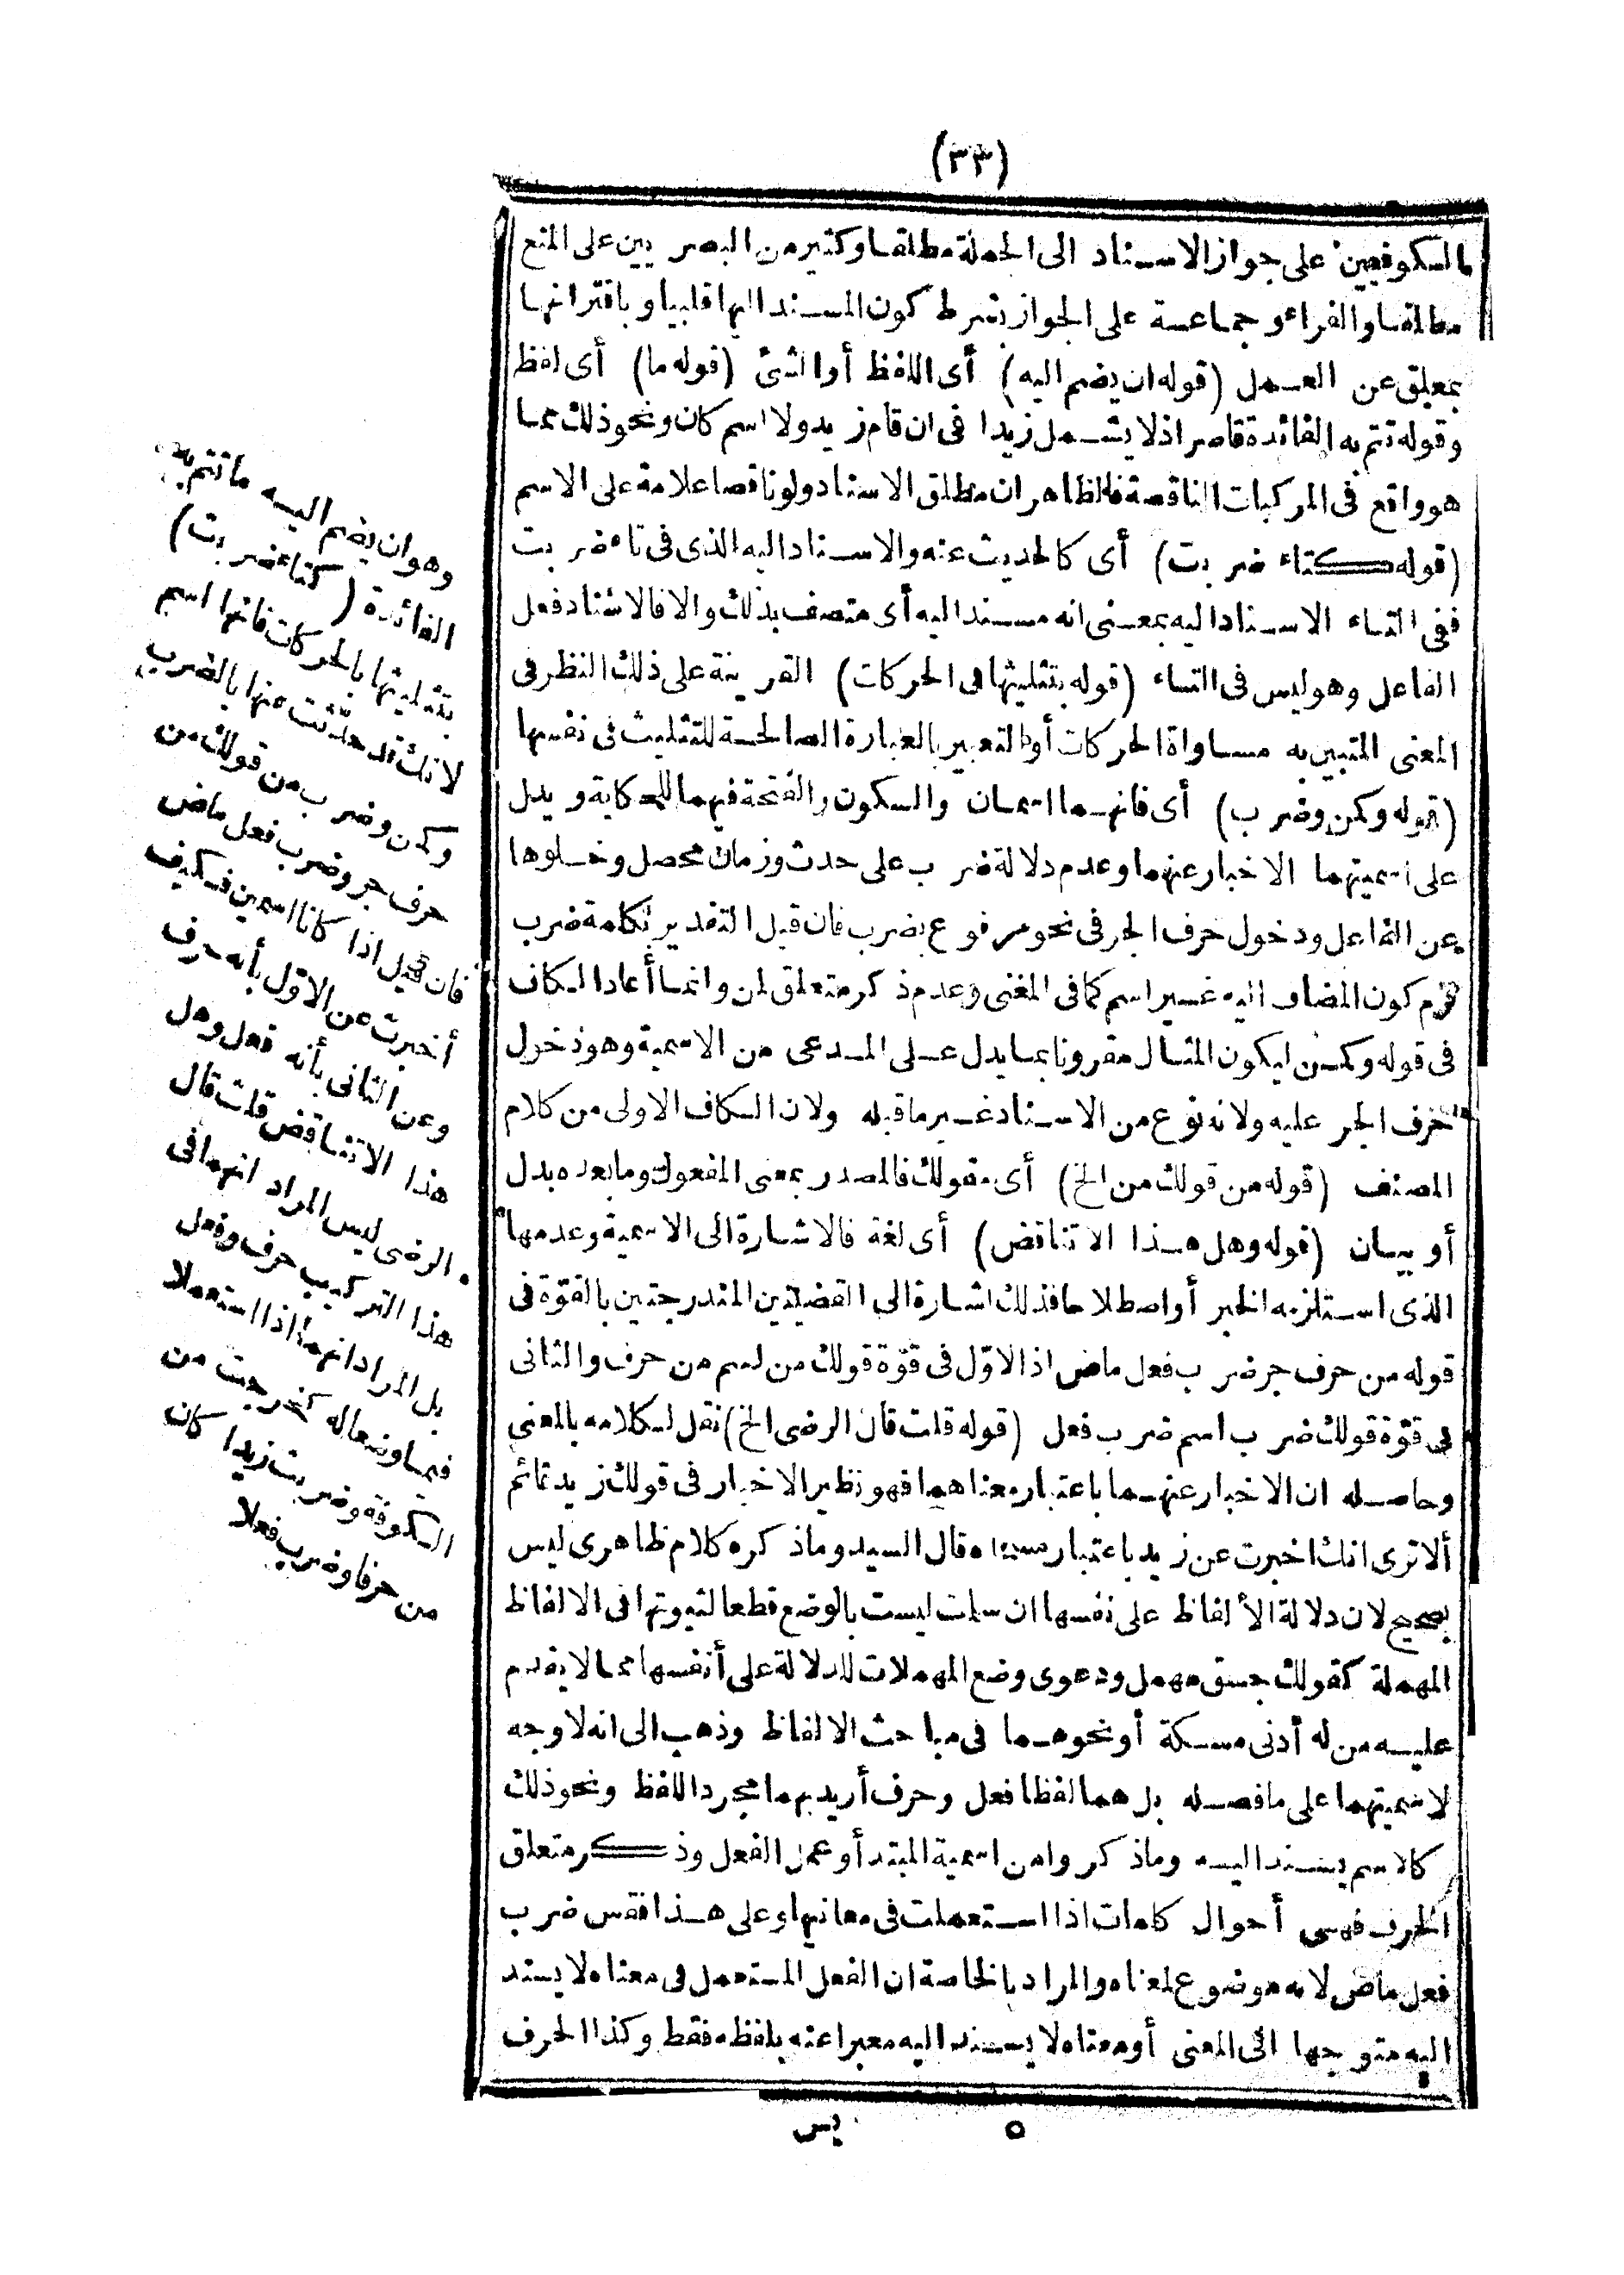 (٣٣)
مالكوفيين على جواز الاسناد الى الجملة مطلقا وكثير من البصر يين على المنع
مطلقا والفراء وجماعة على الجواز بشرط كون المسند اليها قلبيا وباقترانها
بمعلق عن العمل (قوله ان يضم اليه) أى اللفظ أو الشئ (قوله ما) أى لفظ
وقوله تتم به الفائدة قاصر اذ لا يشمل زيدا فى ان قام زيد ولا اسم كان ونحو ذلك مما
هو واقع فى المركبات الناقصة فالظاهر ان مطلق الاسناد ولو ناقصا علامة على الاسم
(قوله كتاء ضربت) أى كالحديث عنه والاسناد اليه الذى فى تاء ضربت
ففى التاء الاسناد اليه بمعنى انه مسند اليه أى متصف بذلك والا فالاسناد فعل
الفاعل وهو ليس فى التاء (قوله بتثليثها فى الحركات) القرينة على ذلك النظر فى
المعنى المتبين به مساواة الحركات أو التعبير بالعبارة الصالحة للتثليث فى نفسها
(قوله وكمن وضرب) أى فانهما اسمان والسكون والفتحة فيهما للحكاية ويدل
على اسميتهما الاخبار عنهما وعدم دلالة ضرب على حدث وزمان محصل وخلوها
عن الفاعل ودخول حرف الجر فى نحو مرفوع بضرب فان قيل التقدير بكلمة ضرب
لزم كون المضاف اليه غير اسم كما فى المغنى وعدم ذكر متعلق لمن وانما أعاد الكاف
فى قوله وكمن ليكون المثال مقرونا بما يدل على المدعى من الاسمية وهو دخول
حرف الجر عليه ولانه نوع من الاسناد غير ما قبله ولان الكاف الاولى من كلام
المصنف (قوله من قولك من الخ) أى مقولك فالمصدر بمعنى المفعول وما بعده بدل
أو بيان (قوله وهل هذا الا تناقض) أى لغة فالاشارة الى الاسمية وعدمها
الذى استلزمه الخبر أو اصطلاحا فذلك اشارة الى القضيتين المندرجتين بالقوّة فى
قوله من حرف جر ضرب فعل ماض اذ الاوّل فى قوّة قولك من اسم من حرف والثانى
فى قوّة قولك ضرب اسم ضرب فعل (قوله قلت قال الرضى الخ) نقل لكلامه بالمعنى
وحاصله ان الاخبار عنهما باعتبار معناهما فهو نظير الاخبار فى قولك زيد قائم
ألا ترى انك اخبرت عن زيد باعتبار مسماه قال السيد وما ذكره كلام ظاهرى ليس
بصحيح لان دلالة الألفاظ على نفسها ان سلمت ليست بالوضع قطعا لثبوتها فى الالفاظ
المهملة كقولك جسق مهمل ودعوى وضع المهملات للدلالة على أنفسها مما لا يقدم
عليه من له أدنى مسكة أو نحوهما فى مباحث الالفاظ وذهب الى انه لا وجه
لاسميتهما على ما فصله بل هما لفظا فعل وحرف أريد بهما مجرد اللفظ ونحو ذلك
كالاسم يسند اليه وما ذكروا من اسمية المبتدأ وعمل الفعل وذكر متعلق
الحرف فهى أحوال كلمات اذا استعملت فى معانيها وعلى هذا فقس ضرب
فعل ماض لانه موضوع لمعناه والمراد بالخاصة ان الفعل المستعمل فى معناه لا يسند
اليه متوجها الى المعنى أو معناه لا يسند اليه معبرا عنه بلفظه فقط وكذا الحرف
٥ يس
وهو ان يضم اليه ما تتم به
الفائدة (كتاء ضربت)
بتثليثها بالحركات فانها اسم
لانك قد حدّثت عنها بالضرب
وكمن وضرب من قولك من
حرف جر وضرب فعل ماض
فان قيل اذا كانا اسمين فكيف
أخبرت عن الاوّل بأنه حرف
وعن الثانى بأنه فعل وهل
هذا الا تناقض قلت قال
الرضى ليس المراد انهما فى
هذا التركيب حرف وفعل
بل المراد انهما اذا استعملا
فيما وضعا له كخرجت من
الكوفة وضربت زيدا كان
من حرفا وضرب فعلا